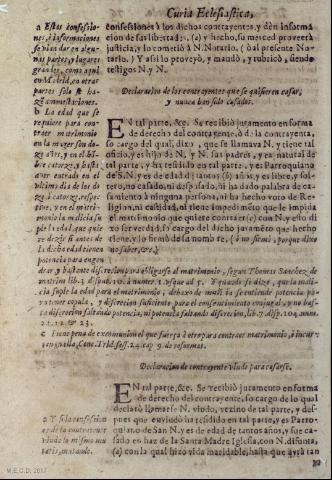 Curia Eclesiastica,
a Estas confessiones,
è informaciones
se piden dar en algunas
partes, y lugares
grandes, como aqui
en Madrid, en otras
partes solo se hazen
amonestaciones.
b La edad que se
requiere para contraer
matrimonio
en la muger son doze
años, y en el hõbre
catorze, y basta
aver entrado en el
ultimo dia de los doze
à catorze, respectiue,
y en el matrimonio
la malicia suple
la edad, que quiere
dezir si antes de
la dicha edad tienen
potencia para engendrar
confessiones à los dichos contrayentes, y dèn informacion
de sus libertades, (a) y hecho, su merced proveerà
justicia, y lo cometiò à N. Notario. ( ò al presente Notario.
) Y assi lo proveyò, y mandò, y rubricò, siendo
testigos N. y N.
Declaracion de los contrayentes que se quisieren casar,
y nunca han sido casados.
EN tal parte, &c. Se recibiò juramento en forma
de derecho del contrayente, ò de la contrayenta,
so cargo del qual, dixo, que se llamava N. y tiene tal
oficio, y es hijo de N. y N. sus padres, y es natural de
tal parte, y ha residido en tal parte, y es Parroquiano
de S. N. y es de edad de tantos (b) años, y es libre, y soltero,
no casado, ni desposado, ni ha dado palabra de casamiento
à ninguna persona, ni ha hecho voto de Religion,
ni castidad, ni tiene impedimento que le impida
el matrimonio que quiere contraer (c) con N. y esto dixo
ser verdad, so cargo del dicho juramẽto que hecho
tiene, y lo firmò de su nombre, ( ò no firmò, porque dixo
no saber, &c.)
drar, y bastante discrecion para obligarse al matrimonio, segun Thomas Sanchez de
matrim. lib. 7. disput. 104. à numer. 1. usque ad 5. Y quando se dize, que la malicia
suple la edad para el matrimonio, debaxo de malicia se entiende potencia para
tener copula, y discrecion suficiente para el consentimiento conjugal, y no basta
discrecion faltando potencia, ni potencia faltando discrecion, lib. 7. disp. 104. num.
21. 22. & 23.
c Tiene pena de excomunion el que fuerça à otro para contraer matrimonio, à incurre
en ella, Conc. Trid. sess. 24. cap. 9. de reformat.
Declaracion de contrayente viudo para casarse.
EN tal parte, &c. Se recibiò juramento en forma
de derecho del contrayente, so cargo de lo qual
declarò llamarse N. viudo, vezino de tal parte, y despues
que enviudò ha residido en tal parte, y es Parroquiano
de San N. y es de edad de tantos años, y fue casado
en haz de la Santa Madre Iglesia, con N. difunta,
(a) con la qual hizo vida maridable, hasta que avrà tan
a Y si la confession
es de la contrayente
viuda lo mismo mutatis,
mutandis.
M.E.C.D. 2017